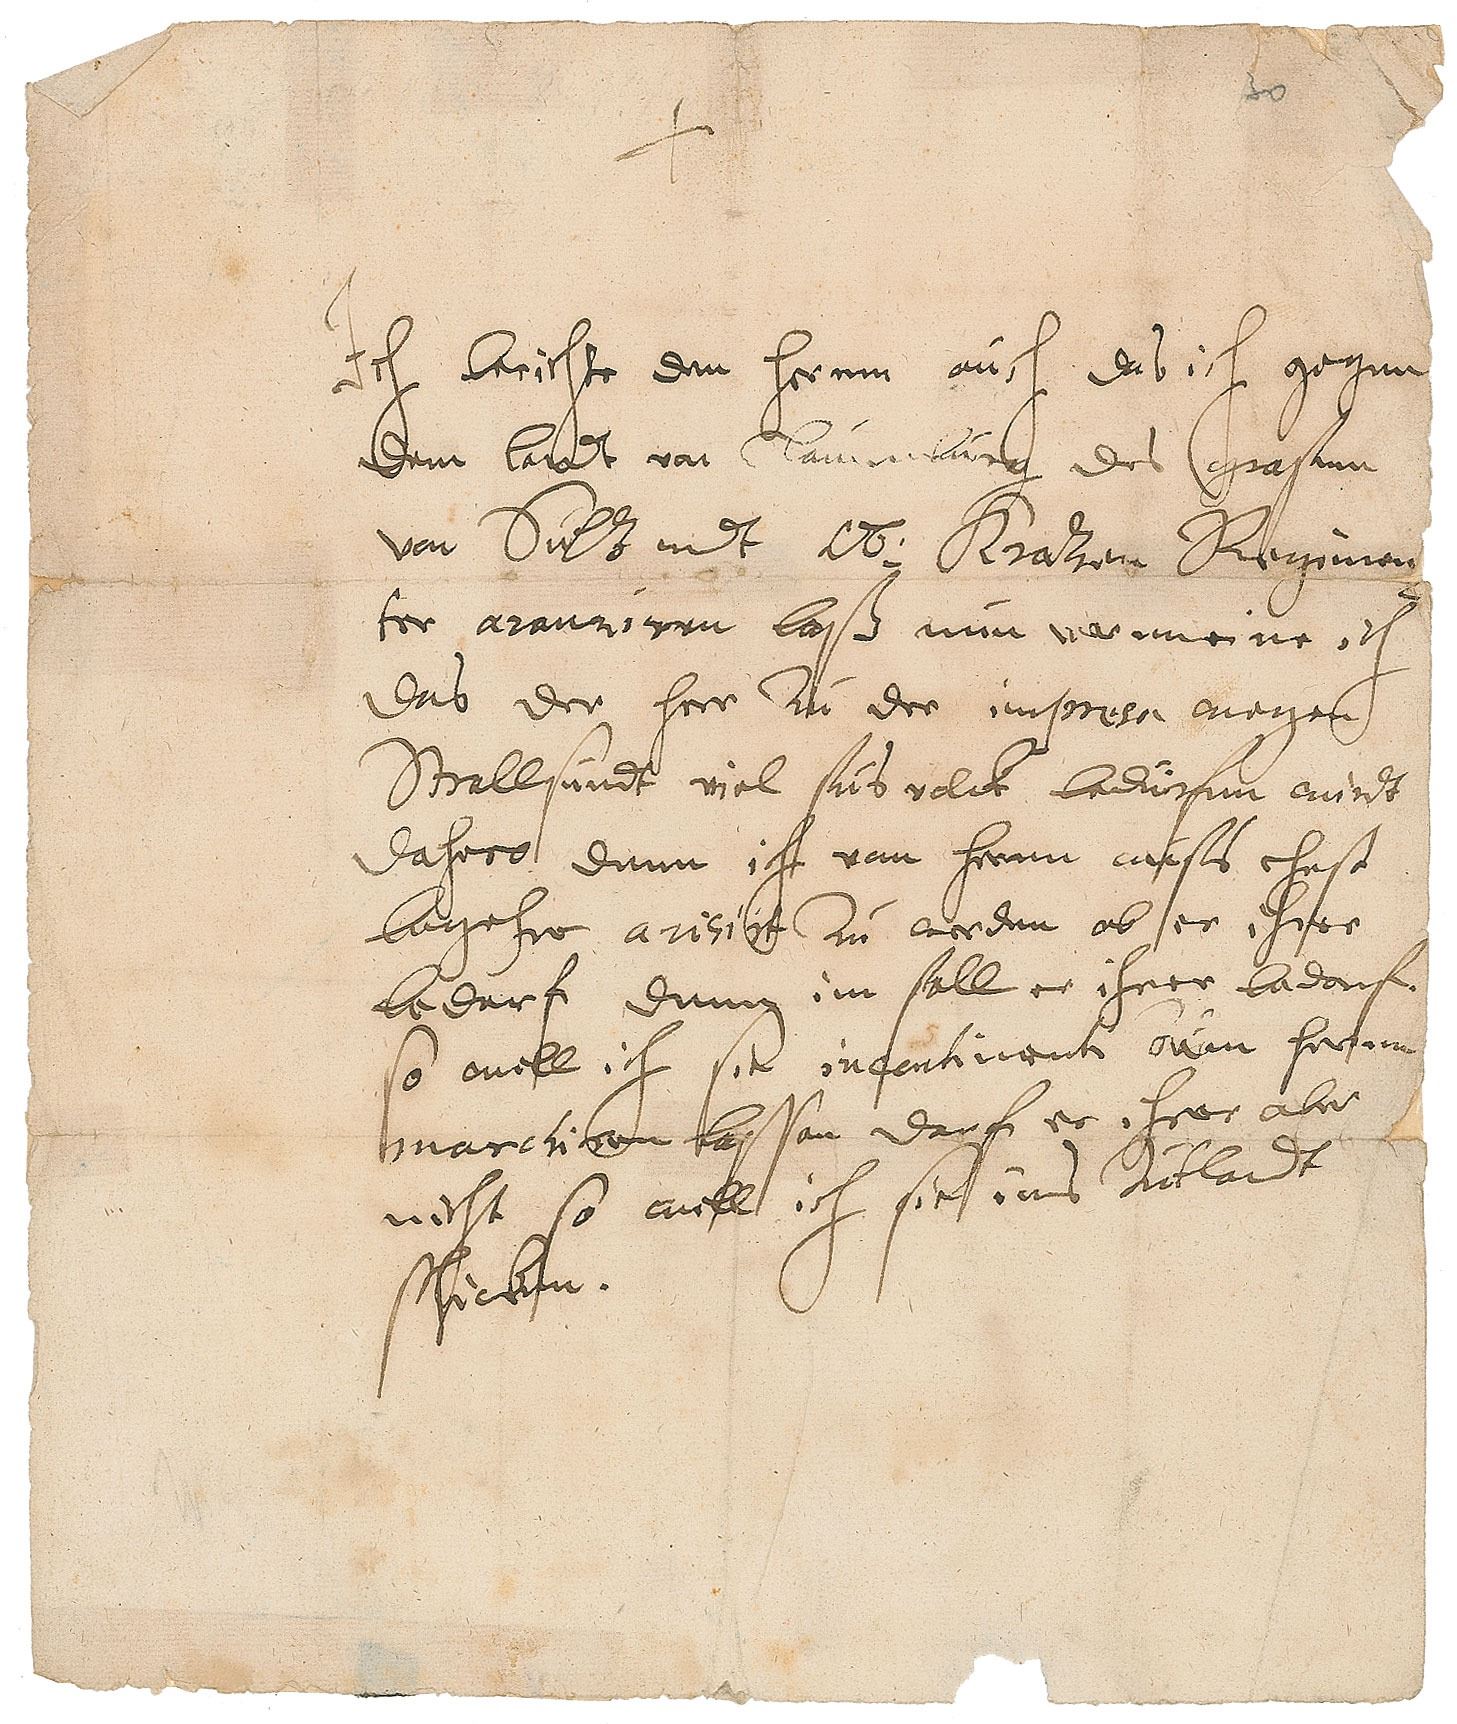 30
Ich berichte dem herrn auch das ich gegen
dem landt von Lauenburg des Grafen
von Sultz undt Ob: Kratzen Regimen
ter avanziren laß nun vermeine ich
das der herr zu der impresa wegen
Strallsundt viel fus volck bedürfen wirdt
dahero dann ich vom herrn aufs ehest
begehre avisirt zu werden ob er ihrer
bedarf dann im fall er ihrer bedarf.
so will ich sie incontinenti zum herrn
marchiren lassen darf er ihrer aber
nicht so will ich sie ins Jütlandt
schicken.